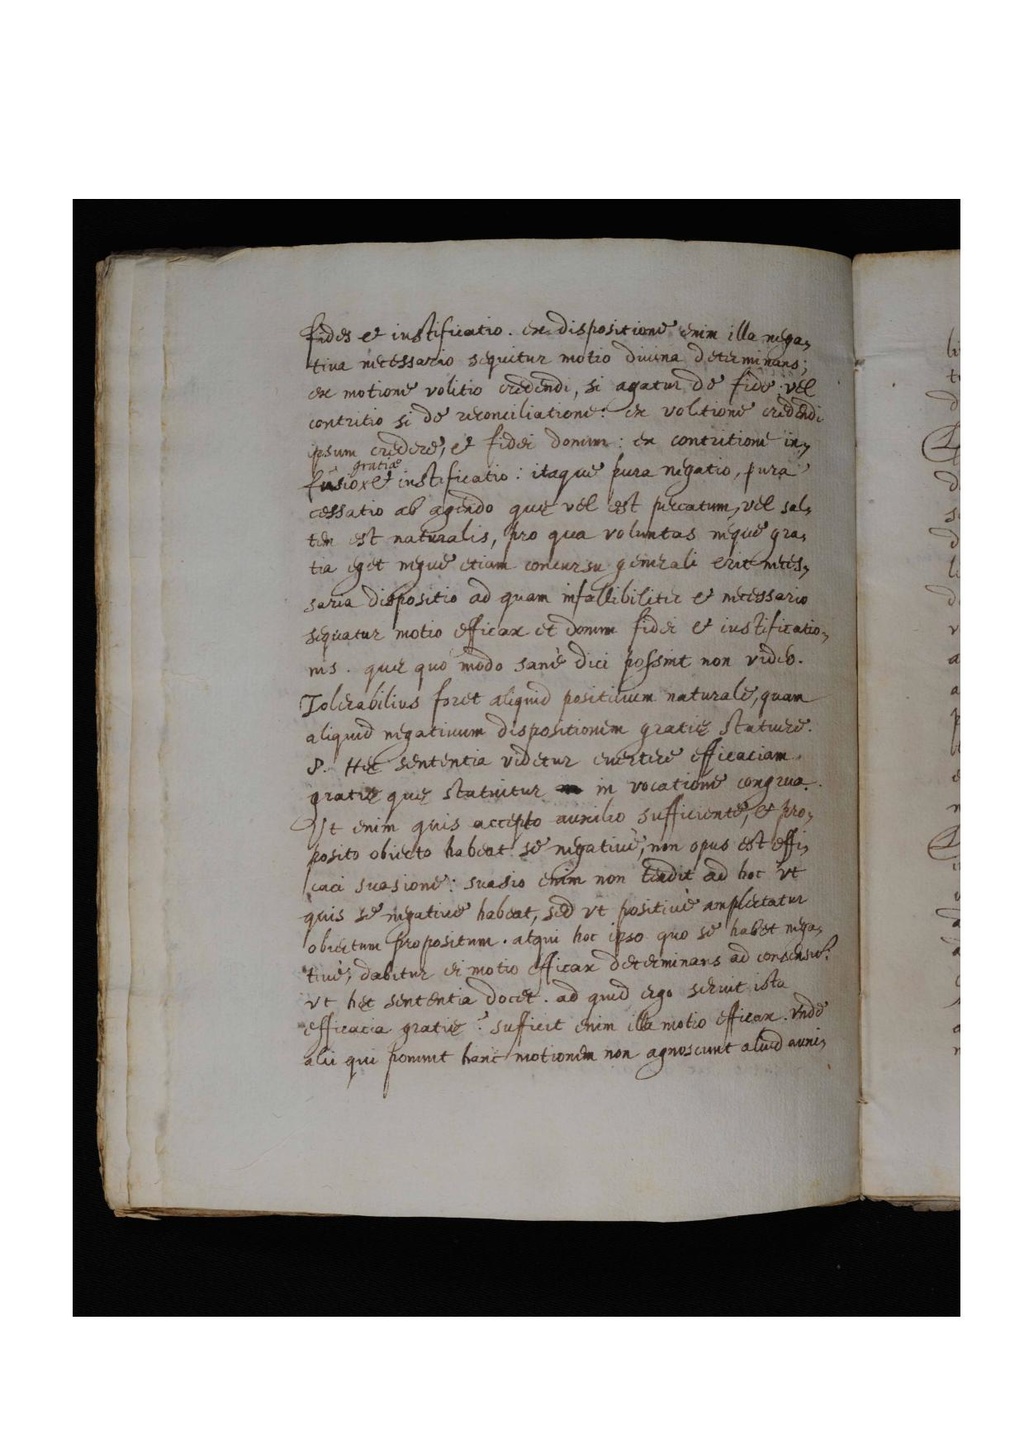 fides et iustificatio. ex dispositione enim illa nega,
tiua necessario sequitur motio diuina determinans;
ex motione volitio credendi, si agatur de fide vel
contritio si de reconciliatione: ex volitione credendi
ipsum credere, et fidei donum: ex contritione in,
gratiæ
fusio et iustificatio: itaque pura negatio, pura
cessatio ab agendo quę vel est peccatum, vel sal,
tem est naturalis, pro qua voluntas neque gra,
tia eget neque etiam concursu generali erit neces,
saria dispositio ad quam infallibiliter et necessario
sequatur motio efficax et donum fidei et iustificatio,
nis. quę quo modo sanè dici possint non video.
Tolerabilius foret aliquid positiuum naturale, quam
aliquid negatiuum dispositionem gratię statuere.
8. Hęc sententia videtur euertere efficaciam
gratię quę statuitur in vocatione congrua.
Vt enim quis accepto auxilio sufficiente, et pro,
posito obiecto habeat se negatiuè, non opus est effi,
caci suasione: suasio enim non tendit ad hoc vt
quis se negatiuè habeat, sed vt positiuè amplectatur
obiectum propositum. atqui hoc ipso quo se habet nega,
tiuè, dabitur ei motio efficax determinans ad consensū.
vt hęc sententia docet. ad quid ergo seruit ista
efficacia gratię? sufficit enim illa motio efficax. vnde
alii qui ponunt hanc motionem non agnoscunt aliud auxi,